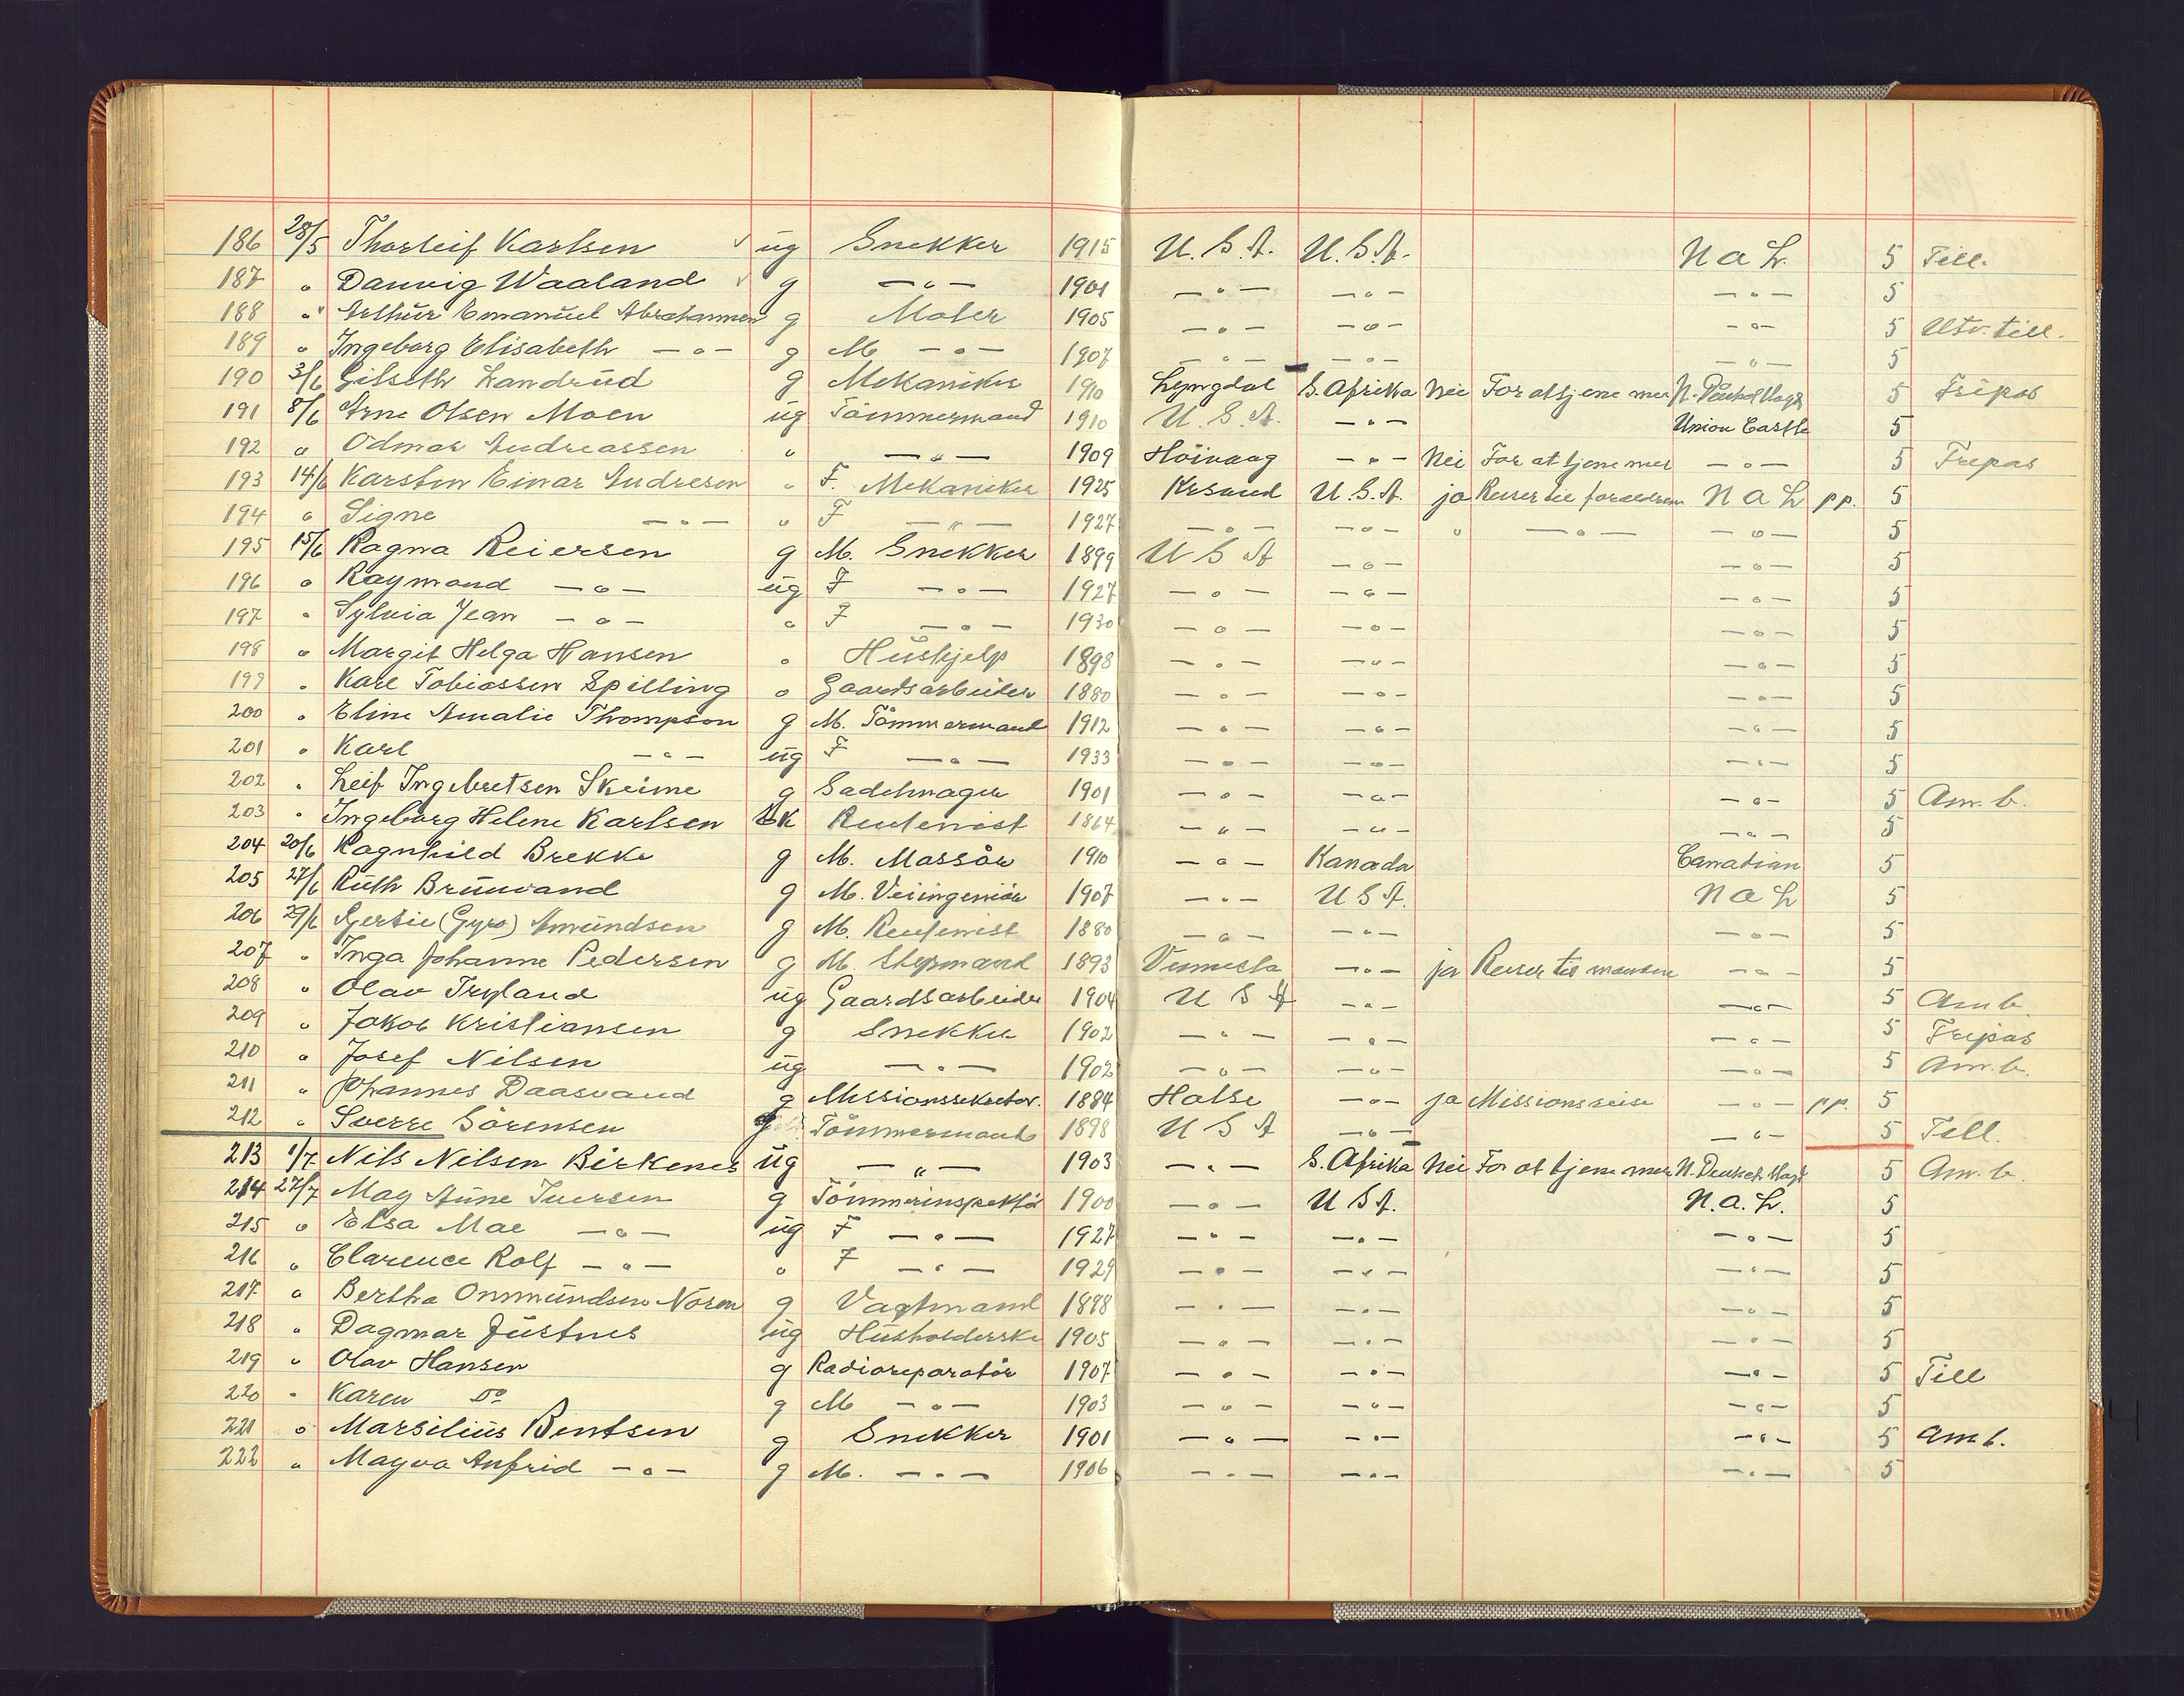 186 28/5 Thorleif Karlsen ✓ ug Snekker 1915 U.S.A. U.S.A. N a L. 5 Till.
187 " Danvig Waaland ✓ g —"— 1901 —"— —"— —"— 5
188 " Arthur Emanuel Abrahamsen g Maler 1905 —"— —"— —"— 5 Utv. till.
189 " Ingeborg Elisabeth —"— g M —"— 1907 —"— —"— —"— 5
190 3/6 Gilseth Landrud g Mekaniker 1910 Lyngdal S. Afrika Nei For at tjene mer 5 Fripas
191 8/6 Arne Olsen Moen ug Tömmermand 1910 U.S.A. —"— Union Castle 5
192 " Odmar Andreassen " —"— 1909 Höivaag —"— Nei For at tjene mer —"— 5 Fripas
193 14/6 Karsten Einar Andresen " F. Mekaniker 1925 Krsand U.S.A. ja Reiser til foraeldrene N a L pp. 5
194 " Signe —"— " F —"— 1927 —"— —"— " —"— —"— 5
195 15/6 Ragna Reiersen g M. Snekker 1899 U S A —"— —"— 5
196 " Raymond —"— ug F —"— 1927 —"— —"— —"— 5
197 " Sylvia Jean —"— " F —"— 1930 —"— —"— —"— 5
198 " Margit Helga Hansen " Hushjelp 1898 —"— —"— —"— 5
199 " Karl Tobiassen Spilling " Gaardsarbeider 1880 —"— —"— —"— 5
200 " Eline Amalie Thompson g M. Tömmermand 1912 —"— —"— —"— 5
201 " Karl —"— ug F —"— 1933 —"— —"— —"— 5
202 " Leif Ingebretsen Skeime g Sadelmager 1901 —"— —"— —"— 5 Am. b.
203 " Ingeborg Helene Karlsen Ek Rentenist 1864 —"— —"— —"— 5
204 20/6 Ragnhild Brekke g M. Massör 1910 —"— Kanada Canadian 5
205 27/6 Ruth Bruvand g M. Veiingeniör 1907 —"— U S A. N a L 5
206 29/6 (Gyro) Amundsen g M. Rentenist 1880 —"— —"— —"— 5
207 " Inga Johanne Pedersen g M. Styrmand 1893 Vennesla —"— ja Reiser til manden —"— 5
208 " Olav Tryland ug Gaardsarbeider 1904 U S A —"— —"— 5 Am b.
209 " Jakob Kristiansen g Snekker 1902 —"— —"— —"— 5 Fripas
210 " Josef Nilsen ug —"— 1902 —"— —"— —"— 5 Am. b.
211 " Johannes Daasvand g Missionssekretær. 1884 Halse —"— ja Missionsreise —"— pp. 5
212 " Sverre Sörensen g Tömmermand 1898 U S A —"— —"— 5 Till.
213 1/7 Nils Nilsen Birkenes ug —"— 1903 —"— S. Afrika Nei For at tjene mer 5 Am. b.
214 27/7 May Aune Iversen g Tömmerinspektör 1900 —"— U S A. N. a. L. 5
215 " Elsa Mae —"— ug F —"— 1927 —"— —"— —"— 5
216 " Clarence Rolf —"— " F —"— 1929 —"— —"— —"— 5
217 " Bertha Onmundsen Noren g Vagtmand 1898 —"— —"— —"— 5
218 " Dagmar Justnes ug Husholderske 1905 —"— —"— —"— 5
219 " Olav Hansen g Radioreparatör 1907 —"— —"— —"— 5 Till
220 " Karen Do g M —"— 1903 —"— —"— —"— 5
221 " Marsilius Bentsen g Snekker 1901 —"— —"— —"— 5 Am b.
222 " Magva Anfrid —"— g M. —"— 1906 —"— —"— —"— 5